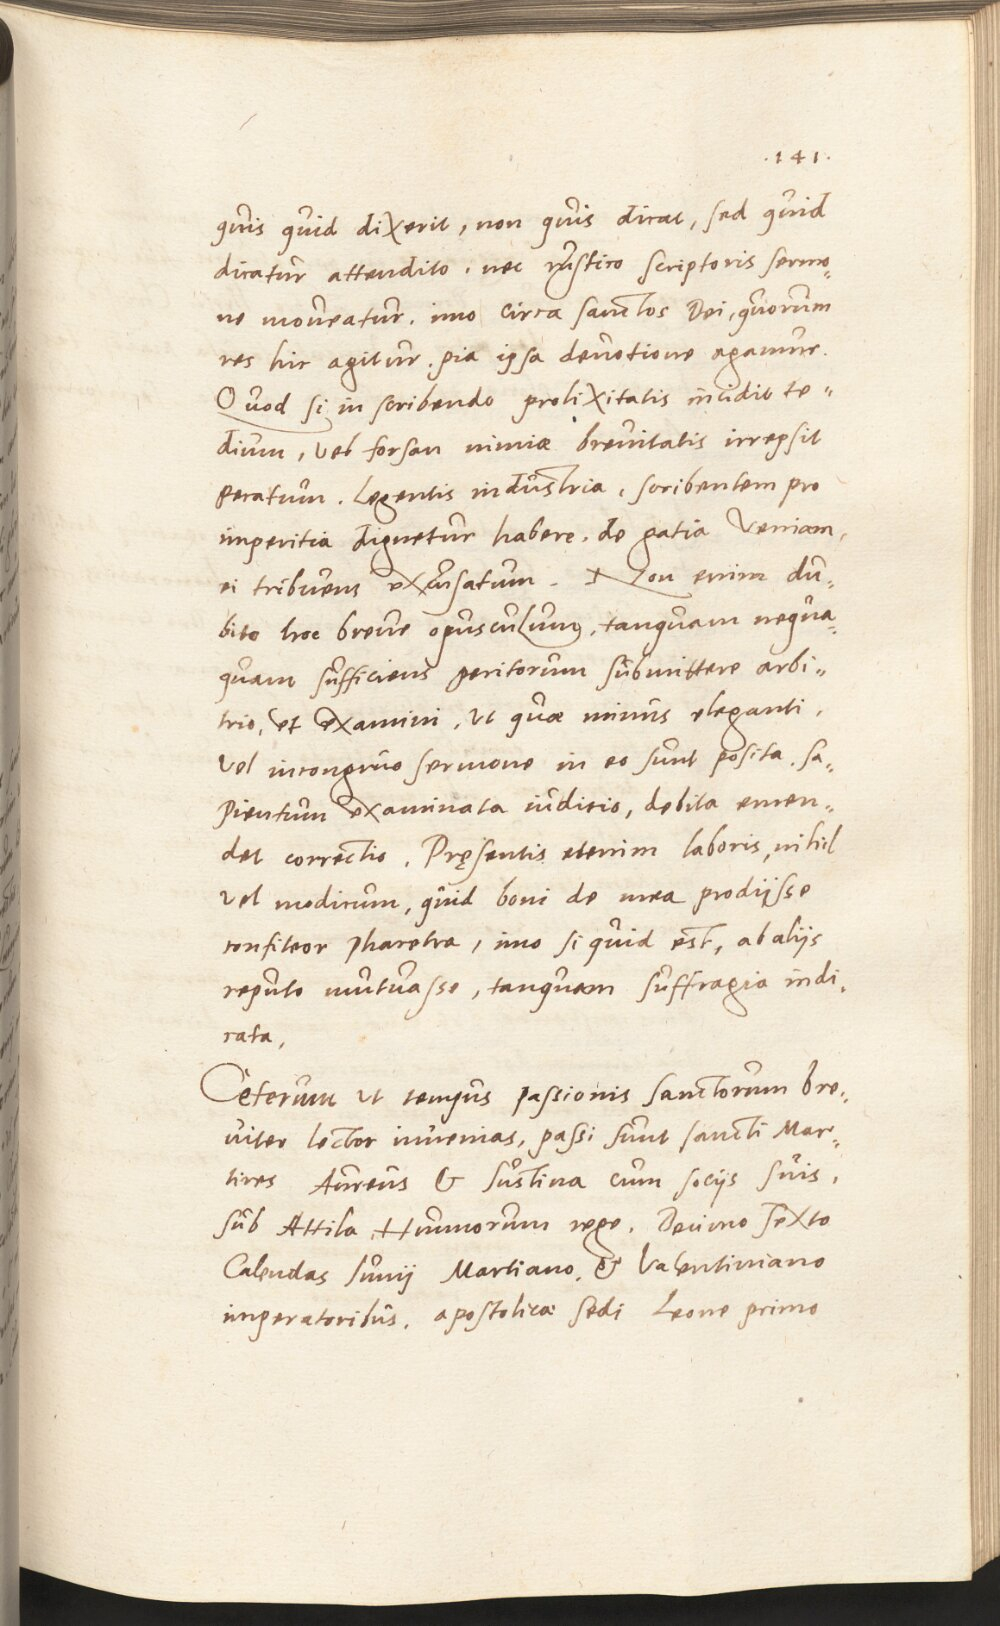 .141.
quis quid dixerit, non quis dicat, sed quid
dicatur attendito. nec rustico scriptoris sermo„
ne moveatur. imo circa sanctos Dei, quorum
res hic agitur. pia ipsa devotione agamur.
Quod si in scribendo prolixitatis incidit te„
dium, vel forsan nimiæ brevitatis irrepsit
peratum. Legentis industria, scribentem pro
imperitia dignetur habere. de gatia veniam,
ei tribuens excusatum. Non enim du„
bito hoc breve opusculum, tanquam nequa„
quam sufficiens peritorum submittere arbi„
trio, et examini, ut quæ minus eleganti,
vel incongruo sermone in eo sunt posita, sa„
pientum examinata iudicio, debita emen„
det correctio. Pręsentis etenim laboris, nihil
vel modicum, quid boni de mea prodijsse
confiteor pharetra, imo si quid est, ab alijs
reputo mutuasse, tanquam suffragia indi„
cata,
Ceterum ut tempus passionis sanctorum bre„
viter lector invenias, passi sunt sancti Mar„
tires Aureus & Iustina cum socijs suis,
sub Attila Hunnorum rege. Decimo sexto
Calendas Iunij Martiano, & Valentiniano
imperatoribus. apostolicæ sedi Leone primo